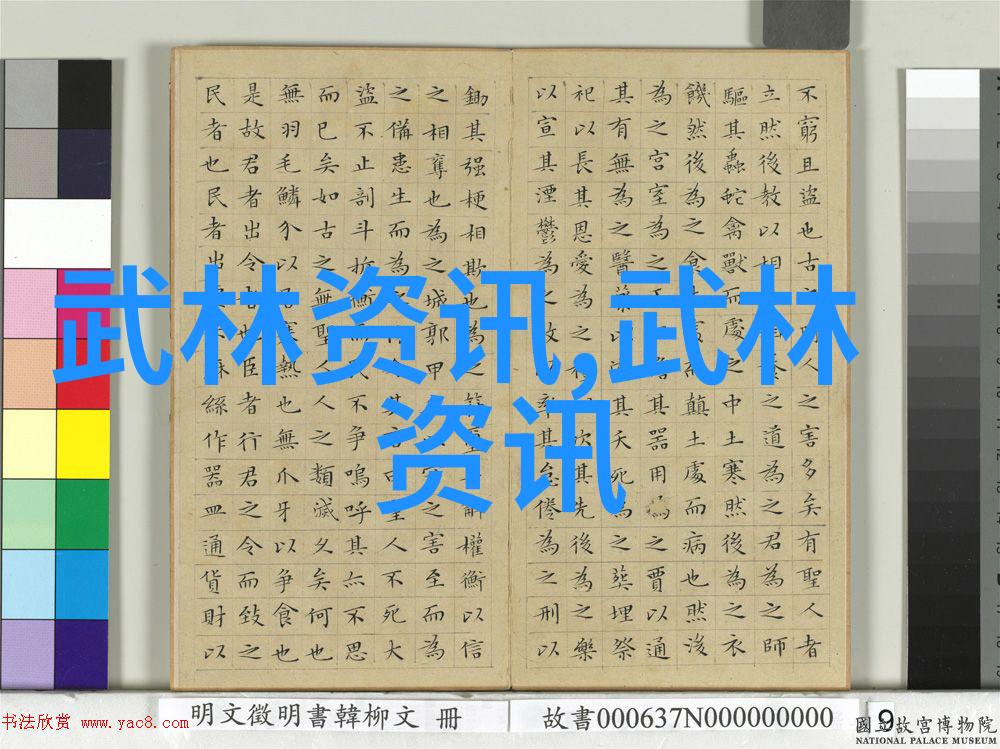 武林资讯,武林
资讯
不窮且盜也古人之害多矣有聖人者
立然後教以相之道為之君為之師
驅其蟲蛇禽獸而處之中土寒然後為之衣
饑然後為之食顛土處而病也然後
為之宮室為之其器用為之賈以通
其有無為之醫藥其夭死為之葬埋祭
祀以長其恩愛為之其先後為之樂
以宣其湮鬱為之政其怠倦為之刑以
鋤其强梗相欺也為之權衡以信
之相奪也為之城郭甲之害至而為
之備患生而為之其言人不死大
盜不止剖斗折衡不爭嗚呼其亦不思
而已矣如古之無聖人人之類滅久矣何也
無羽毛鱗介以寒熱也無爪牙以爭食也
是故君者出令也臣者行君之令而致之
民者也民者出麻絲作器皿通貨財以
明文徵明書韓柳文 冊
故書000637N000000000
9
书法欣赏 www.yac8.com
國立故宮博物院
NATIONAL PALACE MUSEUM